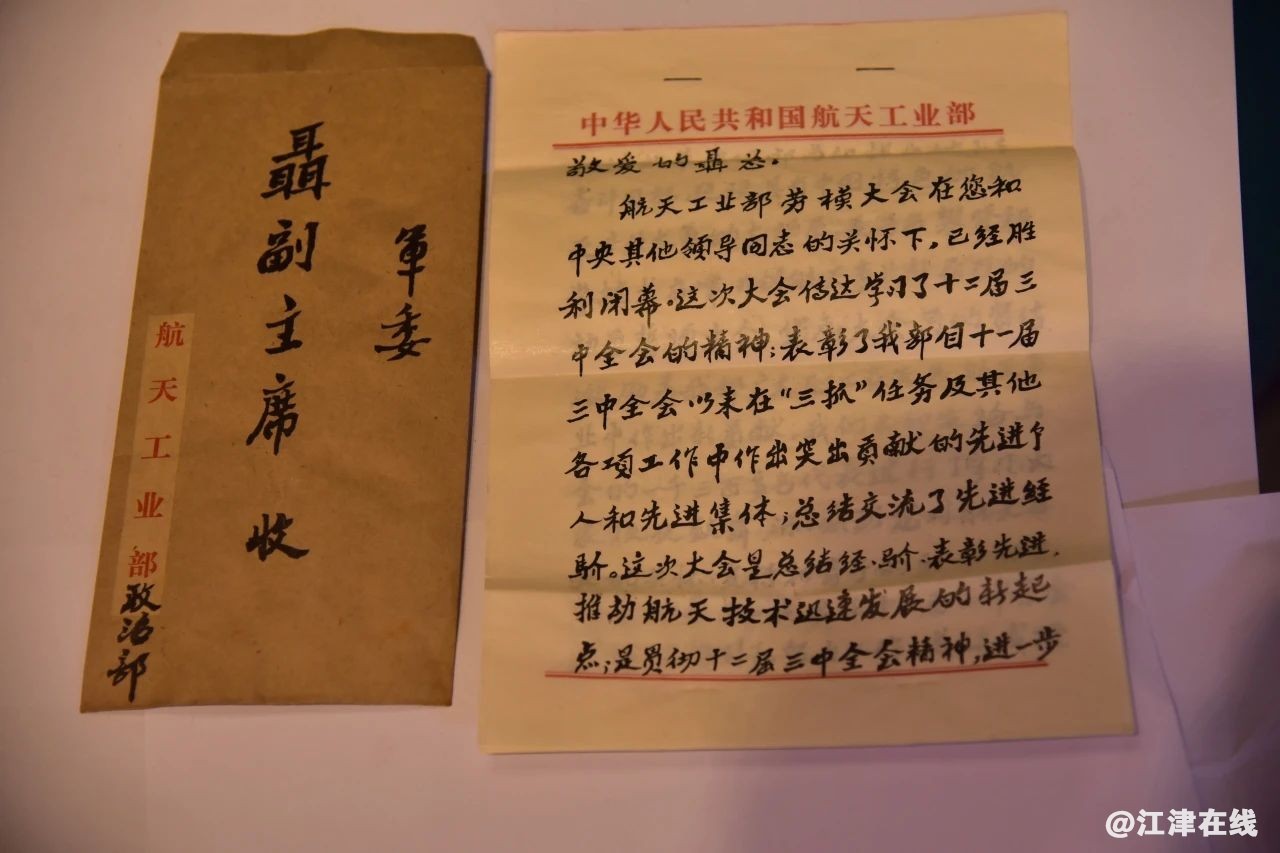 军委
聶副主席 收
航天工业部政治部
中华人民共和国航天工业部
敬爱的聶总。
航天工业部劳模大会在您和
中央其他领导同志的关怀下，已经胜
利闭幕。这次大会传达学习了十二届三
中全会的精神；表彰了我部自十一届
三中全会以来在“三抓”任务及其他
各项工作中作出突出贡献的先进个
人和先进集体；总结交流了先进经
验。这次大会是总结经验、表彰先进、
推动航天技术迅速发展的新起
点；是贯彻十二届三中全会精神，进一步
@江津在线